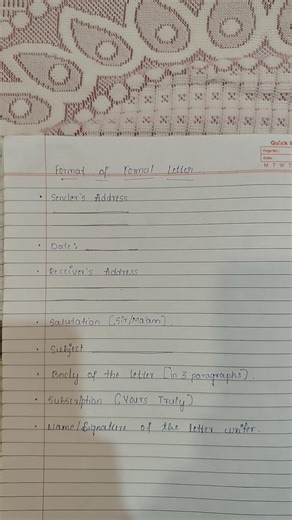 Quick
Page No.:
Date:
M T W T
Format of Formal Letter
• Sender's Address
• Date:
• Receiver's Address
• Salutation (Sir/Ma'am).
• Subject
• Body of the letter [in 3 paragraphs].
• Subscription (Yours Truly)
• Name/Signature of the letter writer.